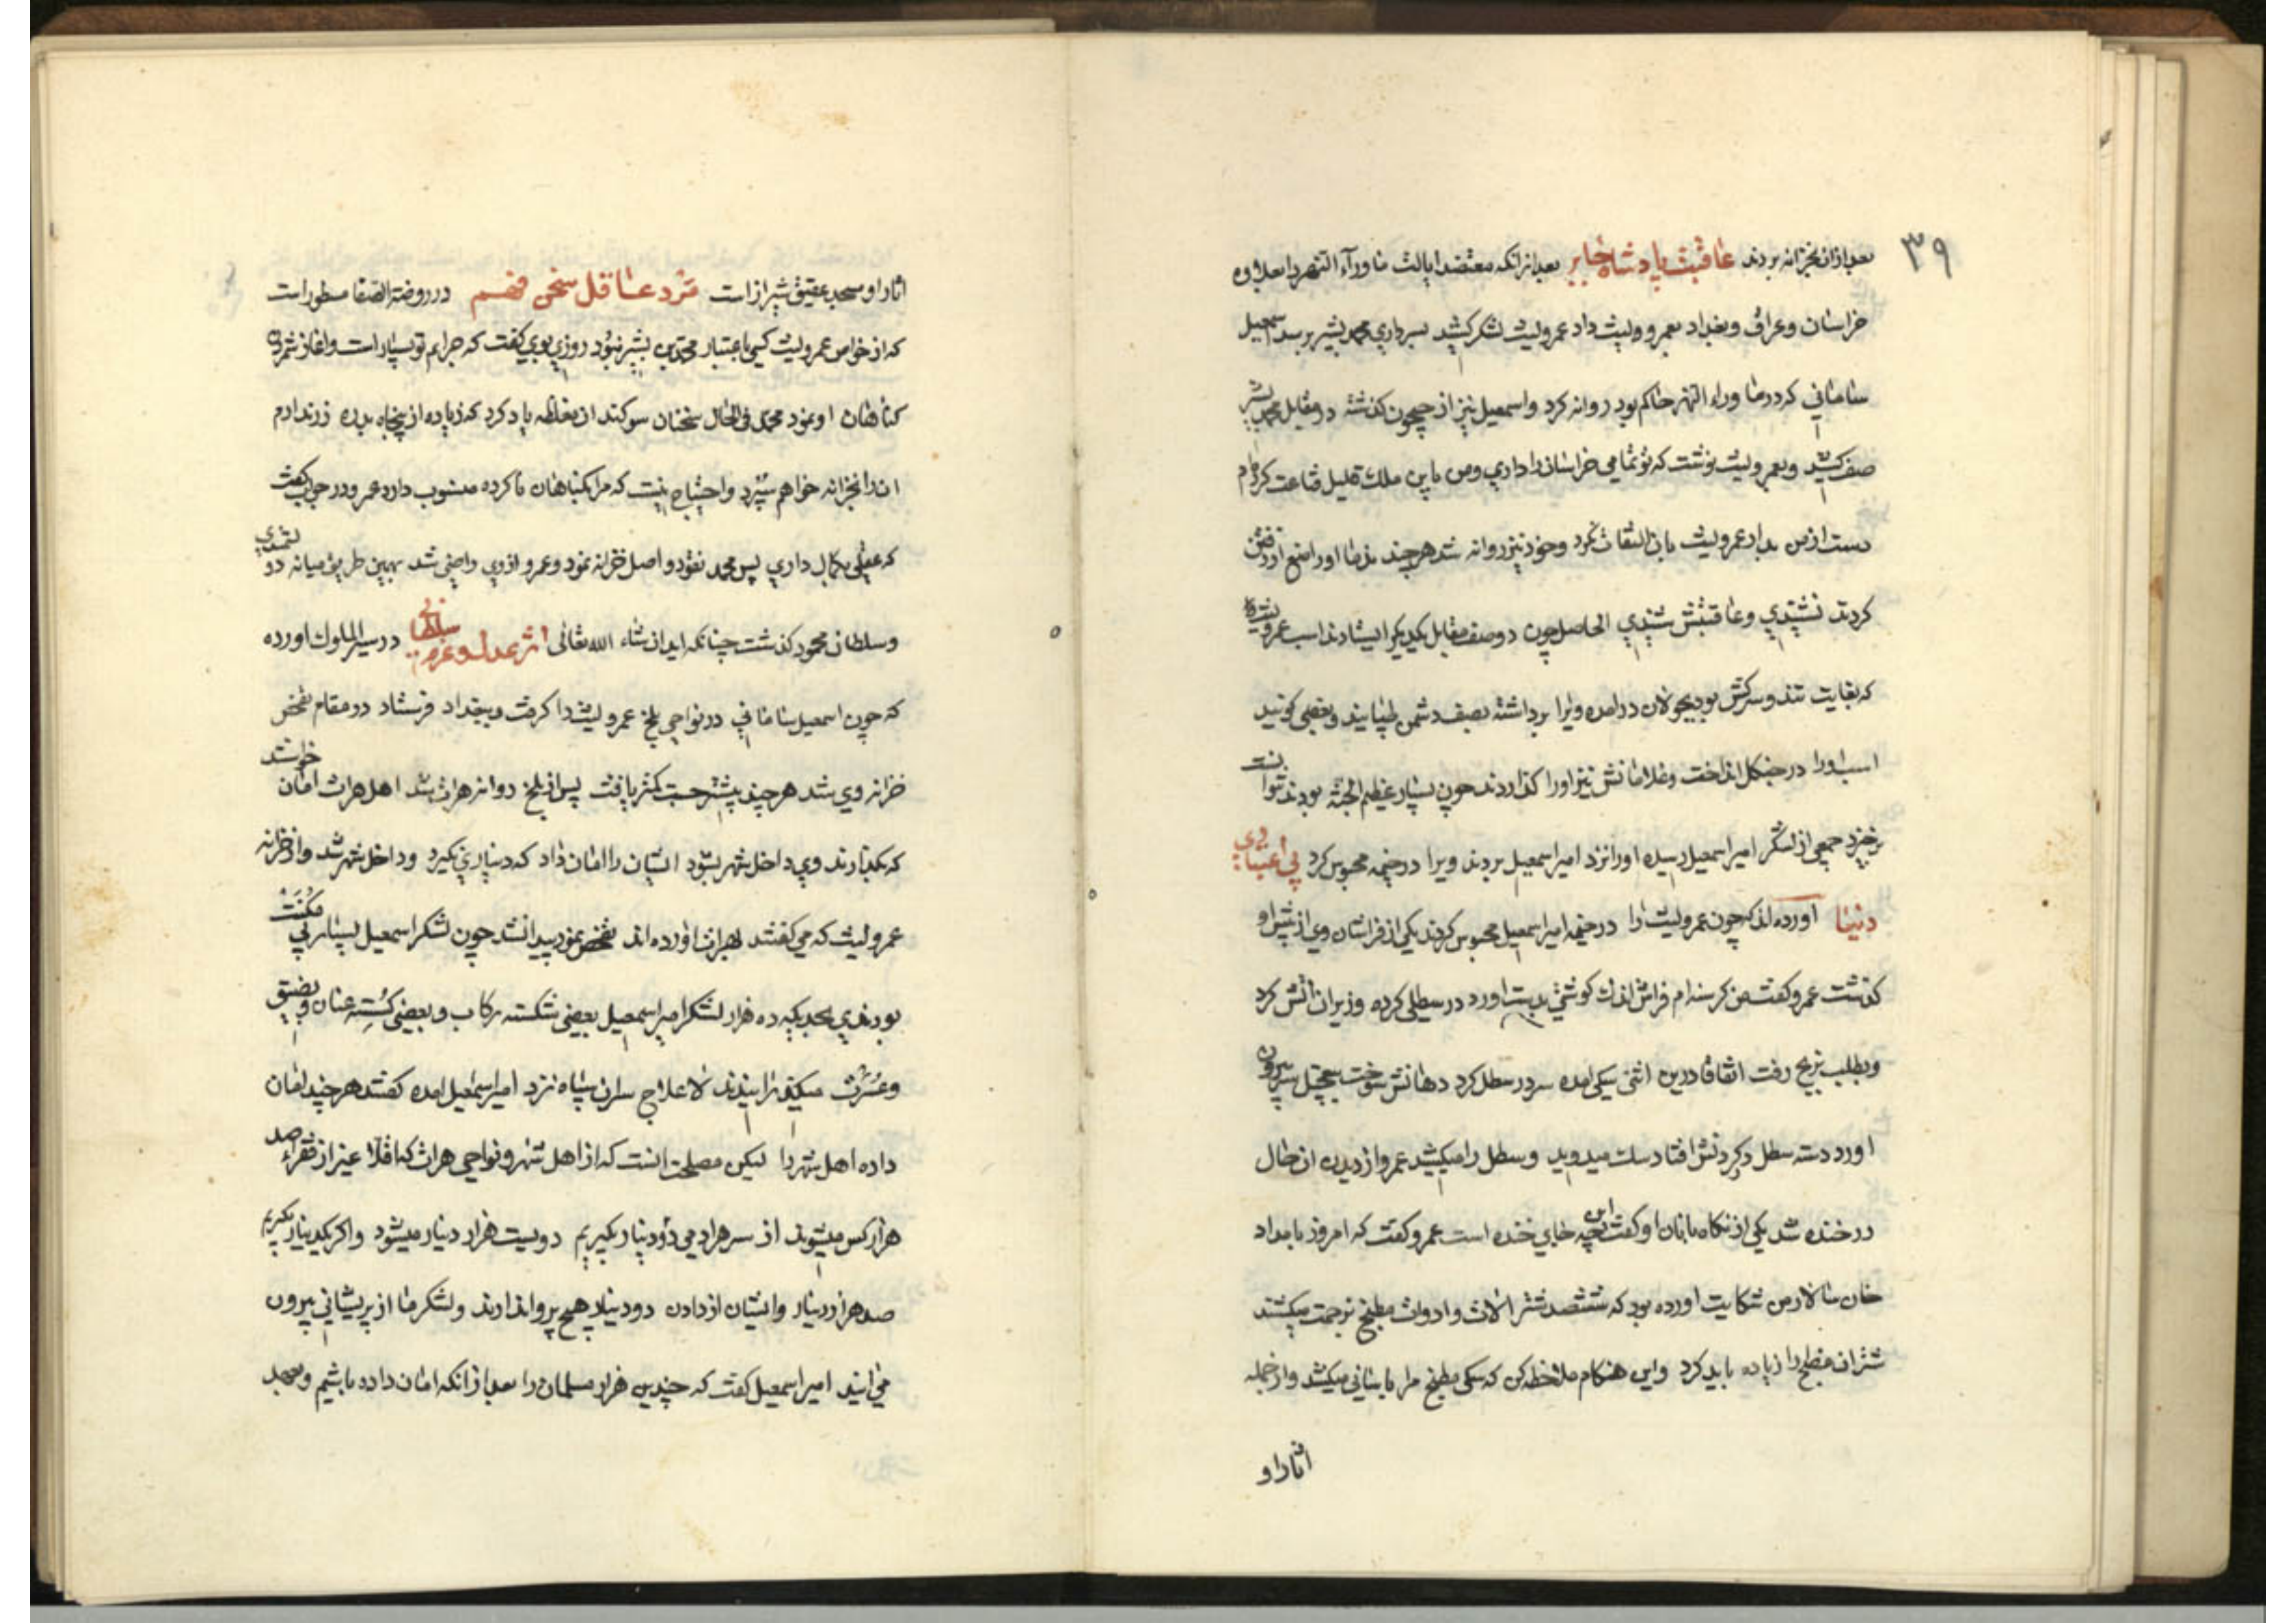 ۳۹
بعد ازان بخزانه بردند عاقبت پادشاه جابر بعد از انکه معتضد ایالت ماورآء النهر را بعلاوه
خراسان و عراق و بغداد بعمرو ولیث داد عمرولیث لشکر کشید بسرداری محمد بشیر بر سد اسمعیل
سامانی که در ماوراء النهر حاکم بود روانه کرد و اسمعیل نیز از جیحون کذشته در مقابل محمد بشیر
صف کشید و بعمرولیث نوشت که تو تمامی خراسانرا داری و من باین ملک قلیل قناعت کرده‌ام
دست از من بدار عمرولیث بان التفات نکرد و خود نیز روانه شد هر چند ندما او را منع از رفتن
کردند نشنیدی و عاقبتش شنیدی الحاصل چون دو صف مقابل یکدیکر ایستادند اسب عمرولیث
که بغایت تند و سرکش بود بجولان در امده ویرا برداشته بصف دشمن و بعضی کویند
اسب او را در جنکل انداخت و غلامانش نیز او را کذاردند چون بسیار عظیم الجثه بود نتوانست
برخیزد جمعی از لشکر امیر اسمعیل رسیده او را نزد امیر اسمعیل بردند ویرا در خیمه محبوس کرد بی اعتباری
دنیا اورده اند که چون عمرولیث را در خیمه امیر اسمعیل محبوس کردند یکی از فراشان وی از پیش او
کذشت عمرو کفت من کرسنه ام فراش اندک کوشتی بدست اورد در سطلی کرده و زیر ان اتش کرد
و بطلب بزیج رفت اتفاقا درین اثنی سکی امده سر در سطل کرد دهانش سوخت بتعجیل سر بیرون
اورد دسته سطل در کردنش افتاد سک میدوید و سطل را میکشید عمرو از دیدن ان حال
در خنده شد یکی از نکاه بانان او کفت این چه جای خنده است عمرو کفت که امروز بامداد
خان سالار من شکایت اورده بود که ششصد شتر الات و ادوات مطبخ بزحمت میکشند
شتران مطبخ را زیاده باید کرد و این هنکام ملاحظه کن که سکی مطبخ مرا باسانی میکشد و از جمله
اثار او
اثار او مسجد عتیق شیراز است مرد عاقل سخن فهم در روضة الصفا مسطور است
که از خواص عمرولیث کسی باعتبار محمد بن بشیر نبود روزی بوی کفت که جرایم تو بسیار است و اغاز شمردن
کناهان او نمود محمد فی الحال سخنان سوکند ان مغلظه یاد کرد که زیاده از پنجاه بدره زر ندارم
ان را بخزانه خواهم سپرد و احتیاج نیست که مرا بکناهان ناکرده منسوب دارد عمرو در جواب کفت
که عقلی بکمال داری پس محمد نقود واصل خزانه نمود و عمرو از وی راضی شد بهمین طریق میانه دو
و سلطان محمود کذشت چنانکه اید ان شاء الله تعالی اثر عدل و عزم سلطانی در سیر الملوک اورده
که چون اسمعیل سامانی در نواحی بلخ عمرولیث را کرفت و ببغداد فرستاد در مقام تفحص
خزانه وی شد هر چند پیشتر جست کمتر یافت پس از بلخ روانه هراة شد اهل هراة امان خواستند
که بکذارند وی داخل شهر شود ایشان را امان داد که دیناری نکیرد و داخل شهر شد و از خزانه
عمرولیث که می کفتند بهراة اورده اند تفحص نمود پیدا نشد چون لشکر اسمعیل بسیار بی مکنت
بودند بحدیکه ده هزار لشکر امیر اسمعیل بعضی شکسته رکاب و بعضی کسسته عنان و بضیق
و عسرت میکذرانیدند لاعلاج سران سپاه نزد امیر اسمعیل امده کفتند هر چند امان
داده اهل شهر را لیکن مصلحت انست که از اهل شهر و نواحی هراة که اقلا غیر از فقراء صد
هزار کس میشوند از سر هر ادمی دو دینار بکیریم دویست هزار دینار میشود و اکر یکدینار بکیریم
صد هزار دینار و ایشان از دادن دو دینار هیچ پروا ندارند و لشکر ما از پریشانی بیرون
می ایند امیر اسمعیل کفت که چندین هزار مسلمان را بعد از انکه امان داده باشیم و بعهد